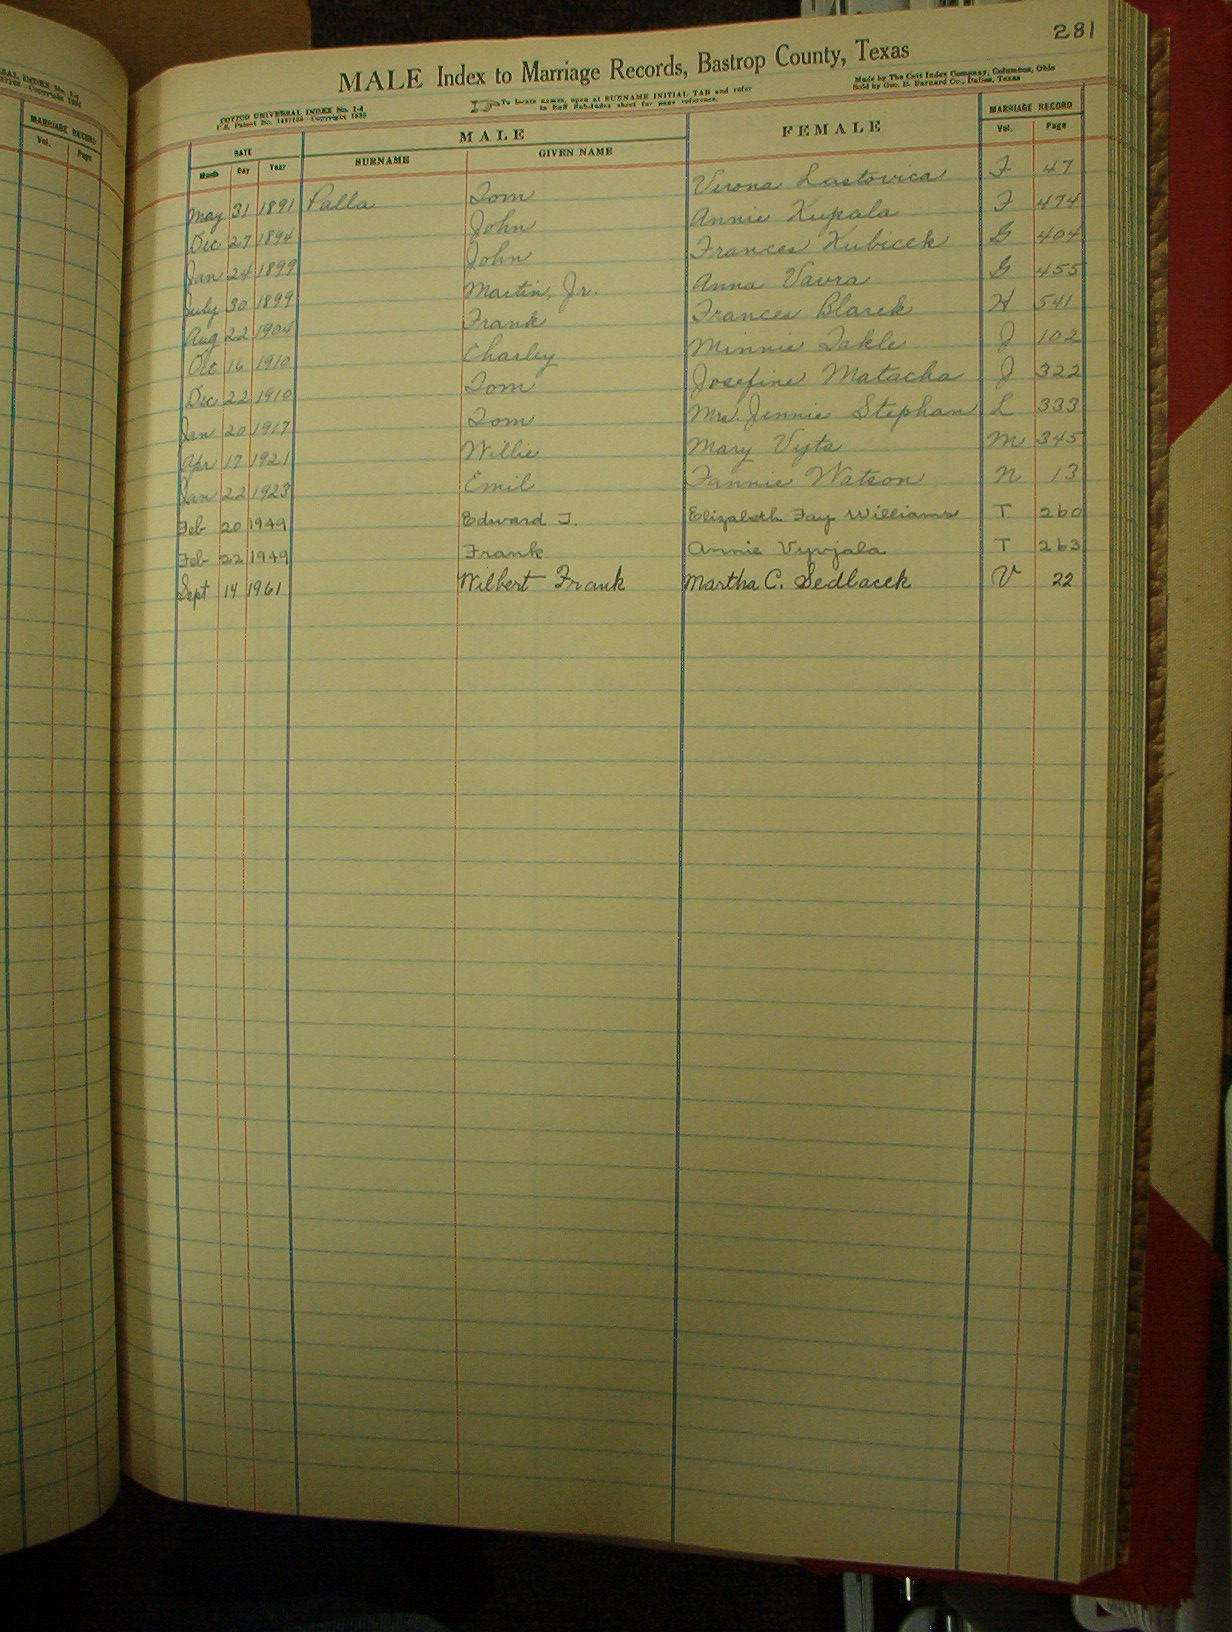 281
MALE Index to Marriage Records, Bastrop County, Texas
COTTCO UNIVERSAL INDEX No. 1-4
To locate names, open at SURNAME INITIAL TAB and refer
Made by The Cott Index Company, Columbus, Ohio
U.S. Patent No. Copyright
to Buff Sub-Index sheet for page reference.
Sold by Geo. D. Barnard Co., Dallas, Texas
DATE MALE FEMALE MARRIAGE RECORD
Month Day Year SURNAME GIVEN NAME Vol. Page
May 31 1891 Palla Tom Verona Lastovica F 47
Dec 27 1894 John Annie Kupala F 474
Jan 24 1899 John Frances Kubicek G 404
July 30 1899 Martin, Jr. Anna Vavra G 455
Aug 22 1904 Frank Frances Blarek H 541
Oct 16 1910 Charley Minnie Takle J 102
Dec 22 1910 Tom Josefine Matacha J 322
Jan 20 1917 Tom Mrs. Jennie Stephan L 333
Apr 17 1921 Willie Mary Vyta M 345
Jan 22 1923 Emil Fannie Watson N 13
Feb 20 1949 Edward J. Elizabeth Fay Williams T 260
Feb 22 1949 Frank Annie Vyvjala T 263
Sept 14 1961 Wilbert Frank Martha C. Sedlacek V 22
MARRIAGE RECORD
Vol. Page